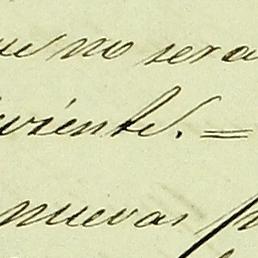 ue no sera
viente. =
nuevas